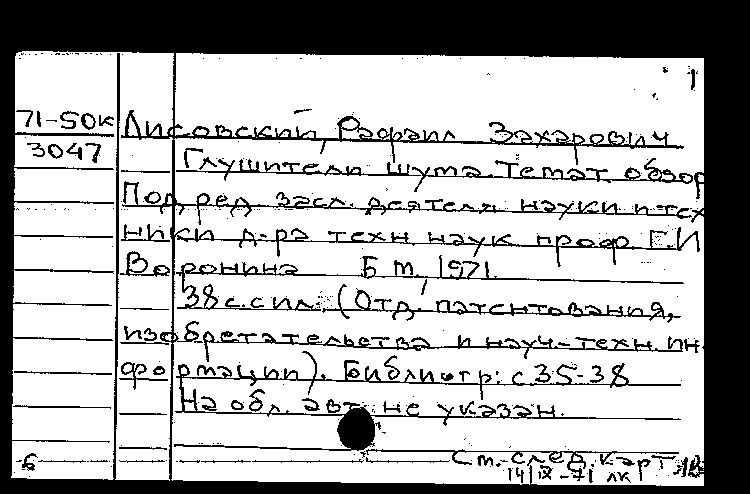 1
71-50к Лисовский, Рафаил Захарович
3047 Глушители шума. Темат. обзор
Под ред. засл. деятеля науки и тех
ники д-ра техн. наук проф. Г.И
Воронина Б.м., 1971.
38 с. с ил. (Отд. патентования,
изобретательства и науч.-техн. ин-
формации). Библиогр: с 35-38
На обл. авт. не указан.
Б См. след. карт
14/IX-71 лк